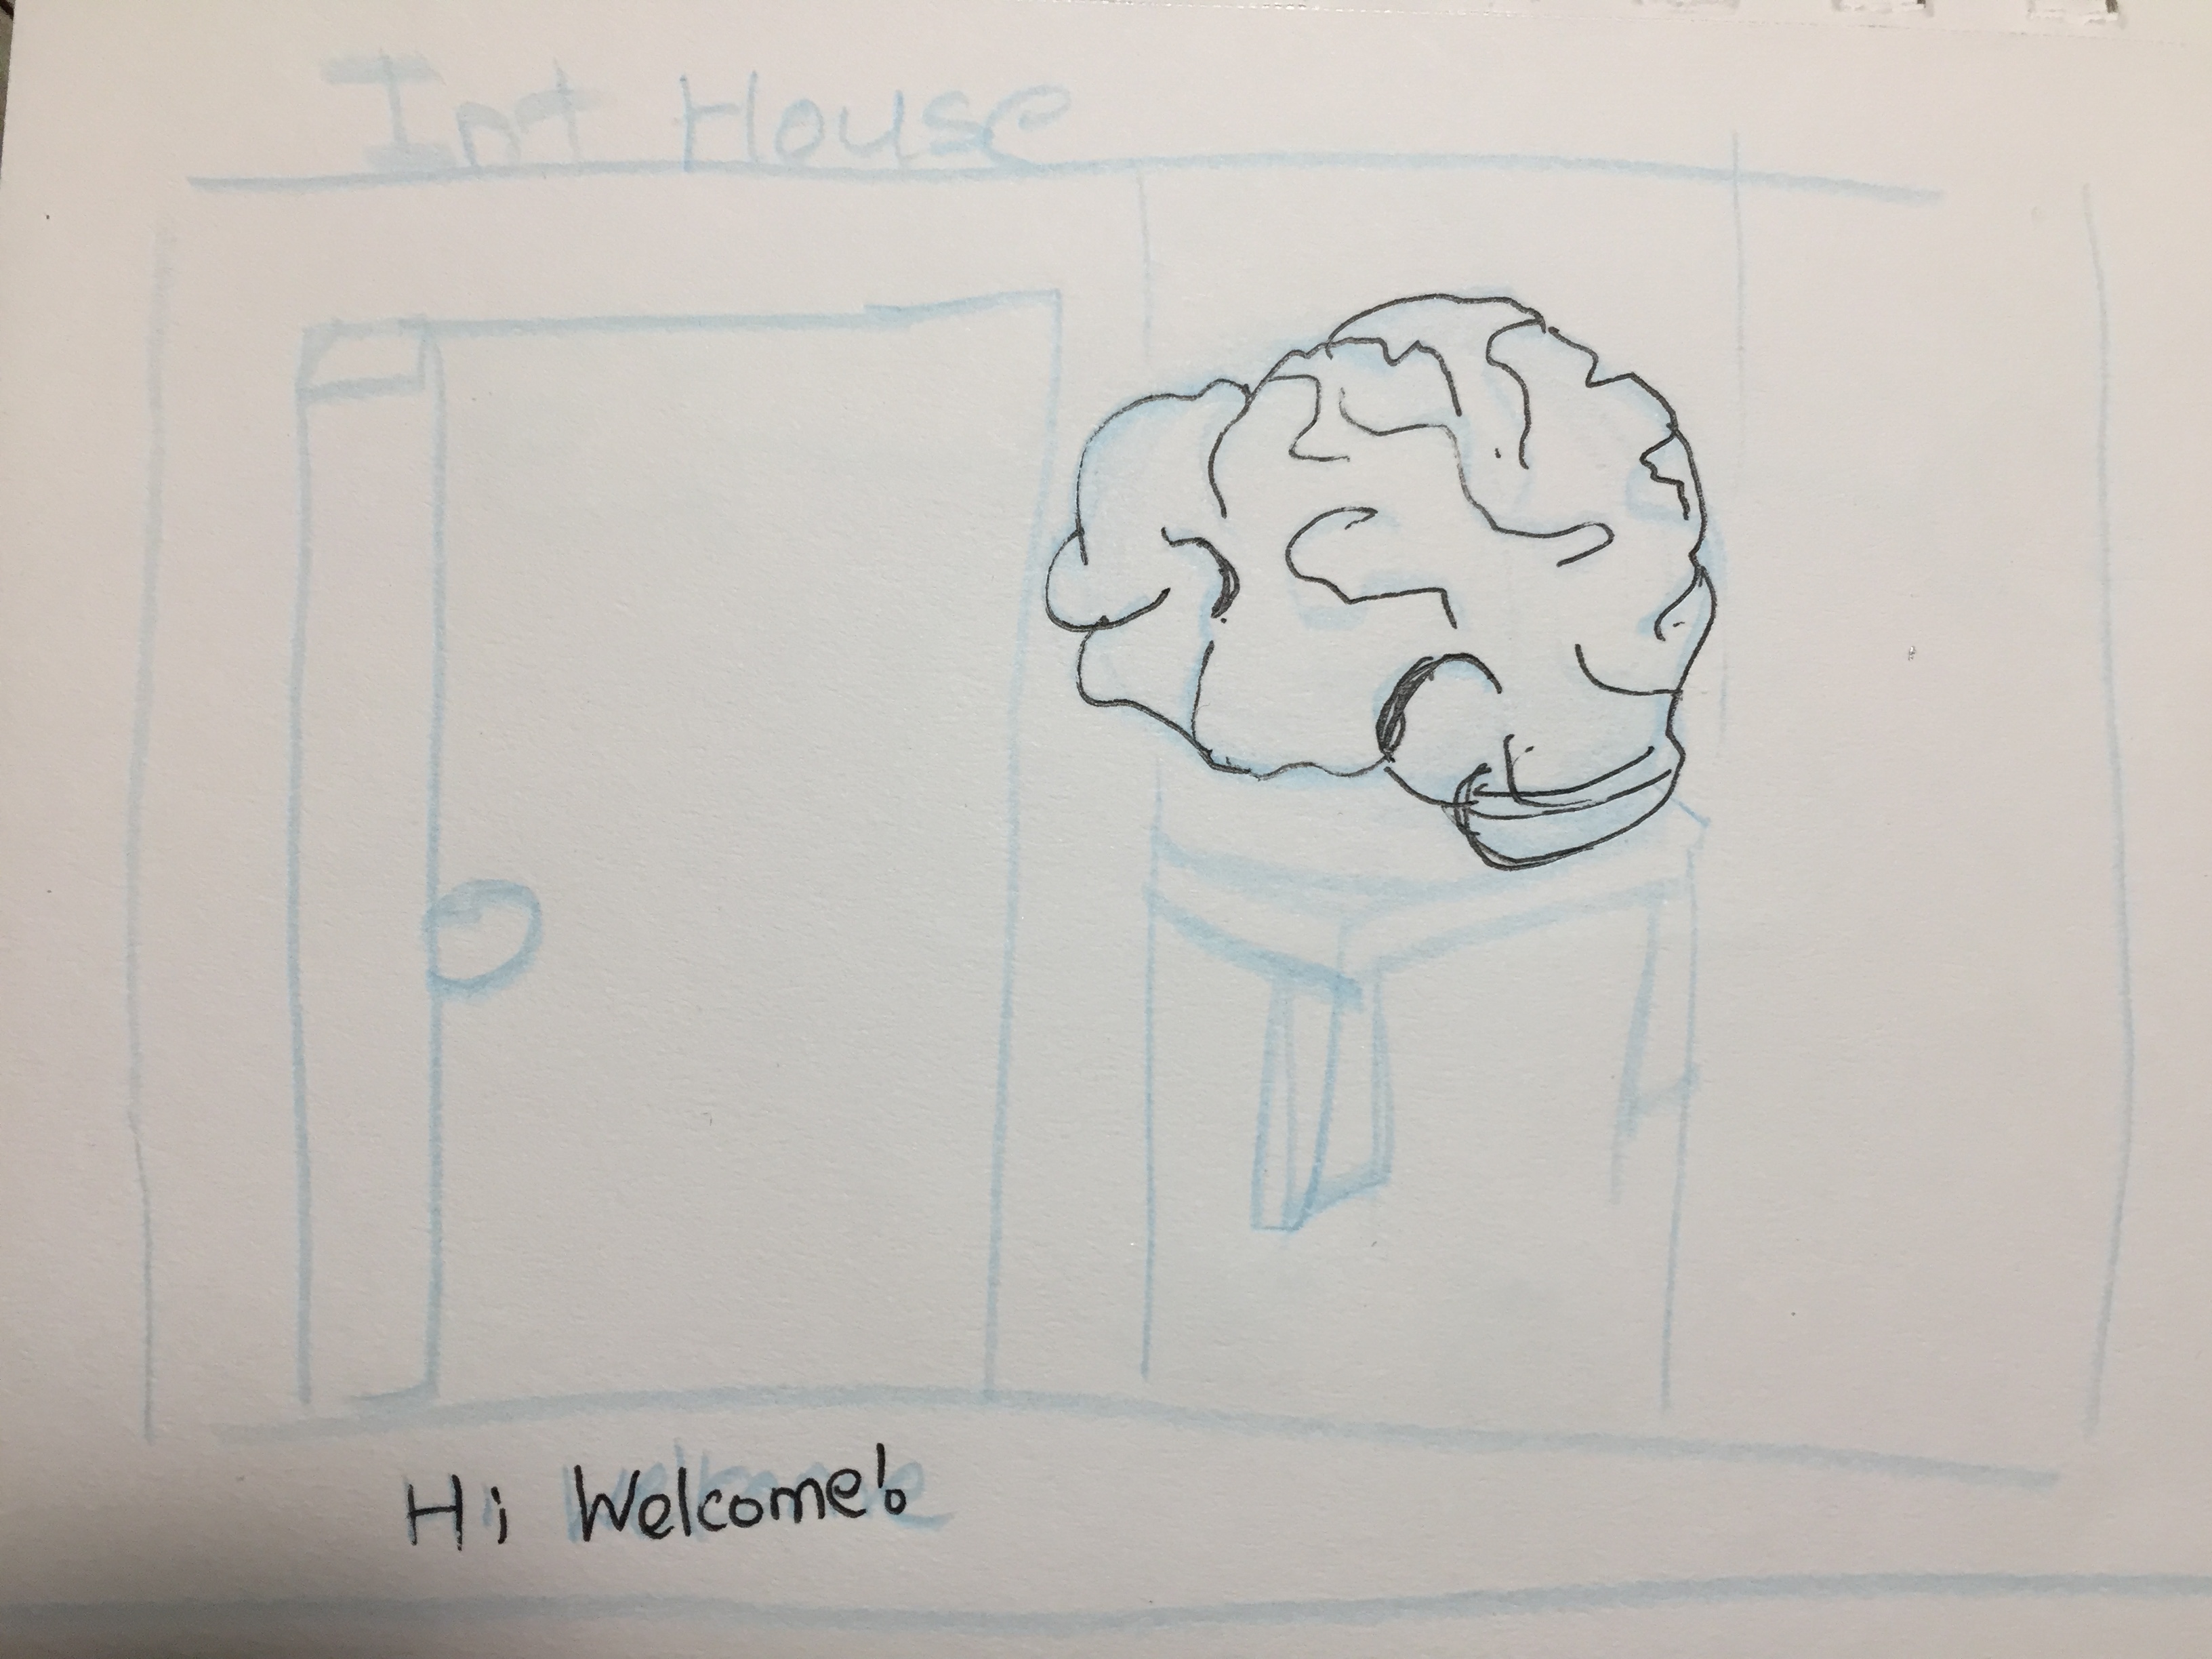 Int House
Hi Welcome!